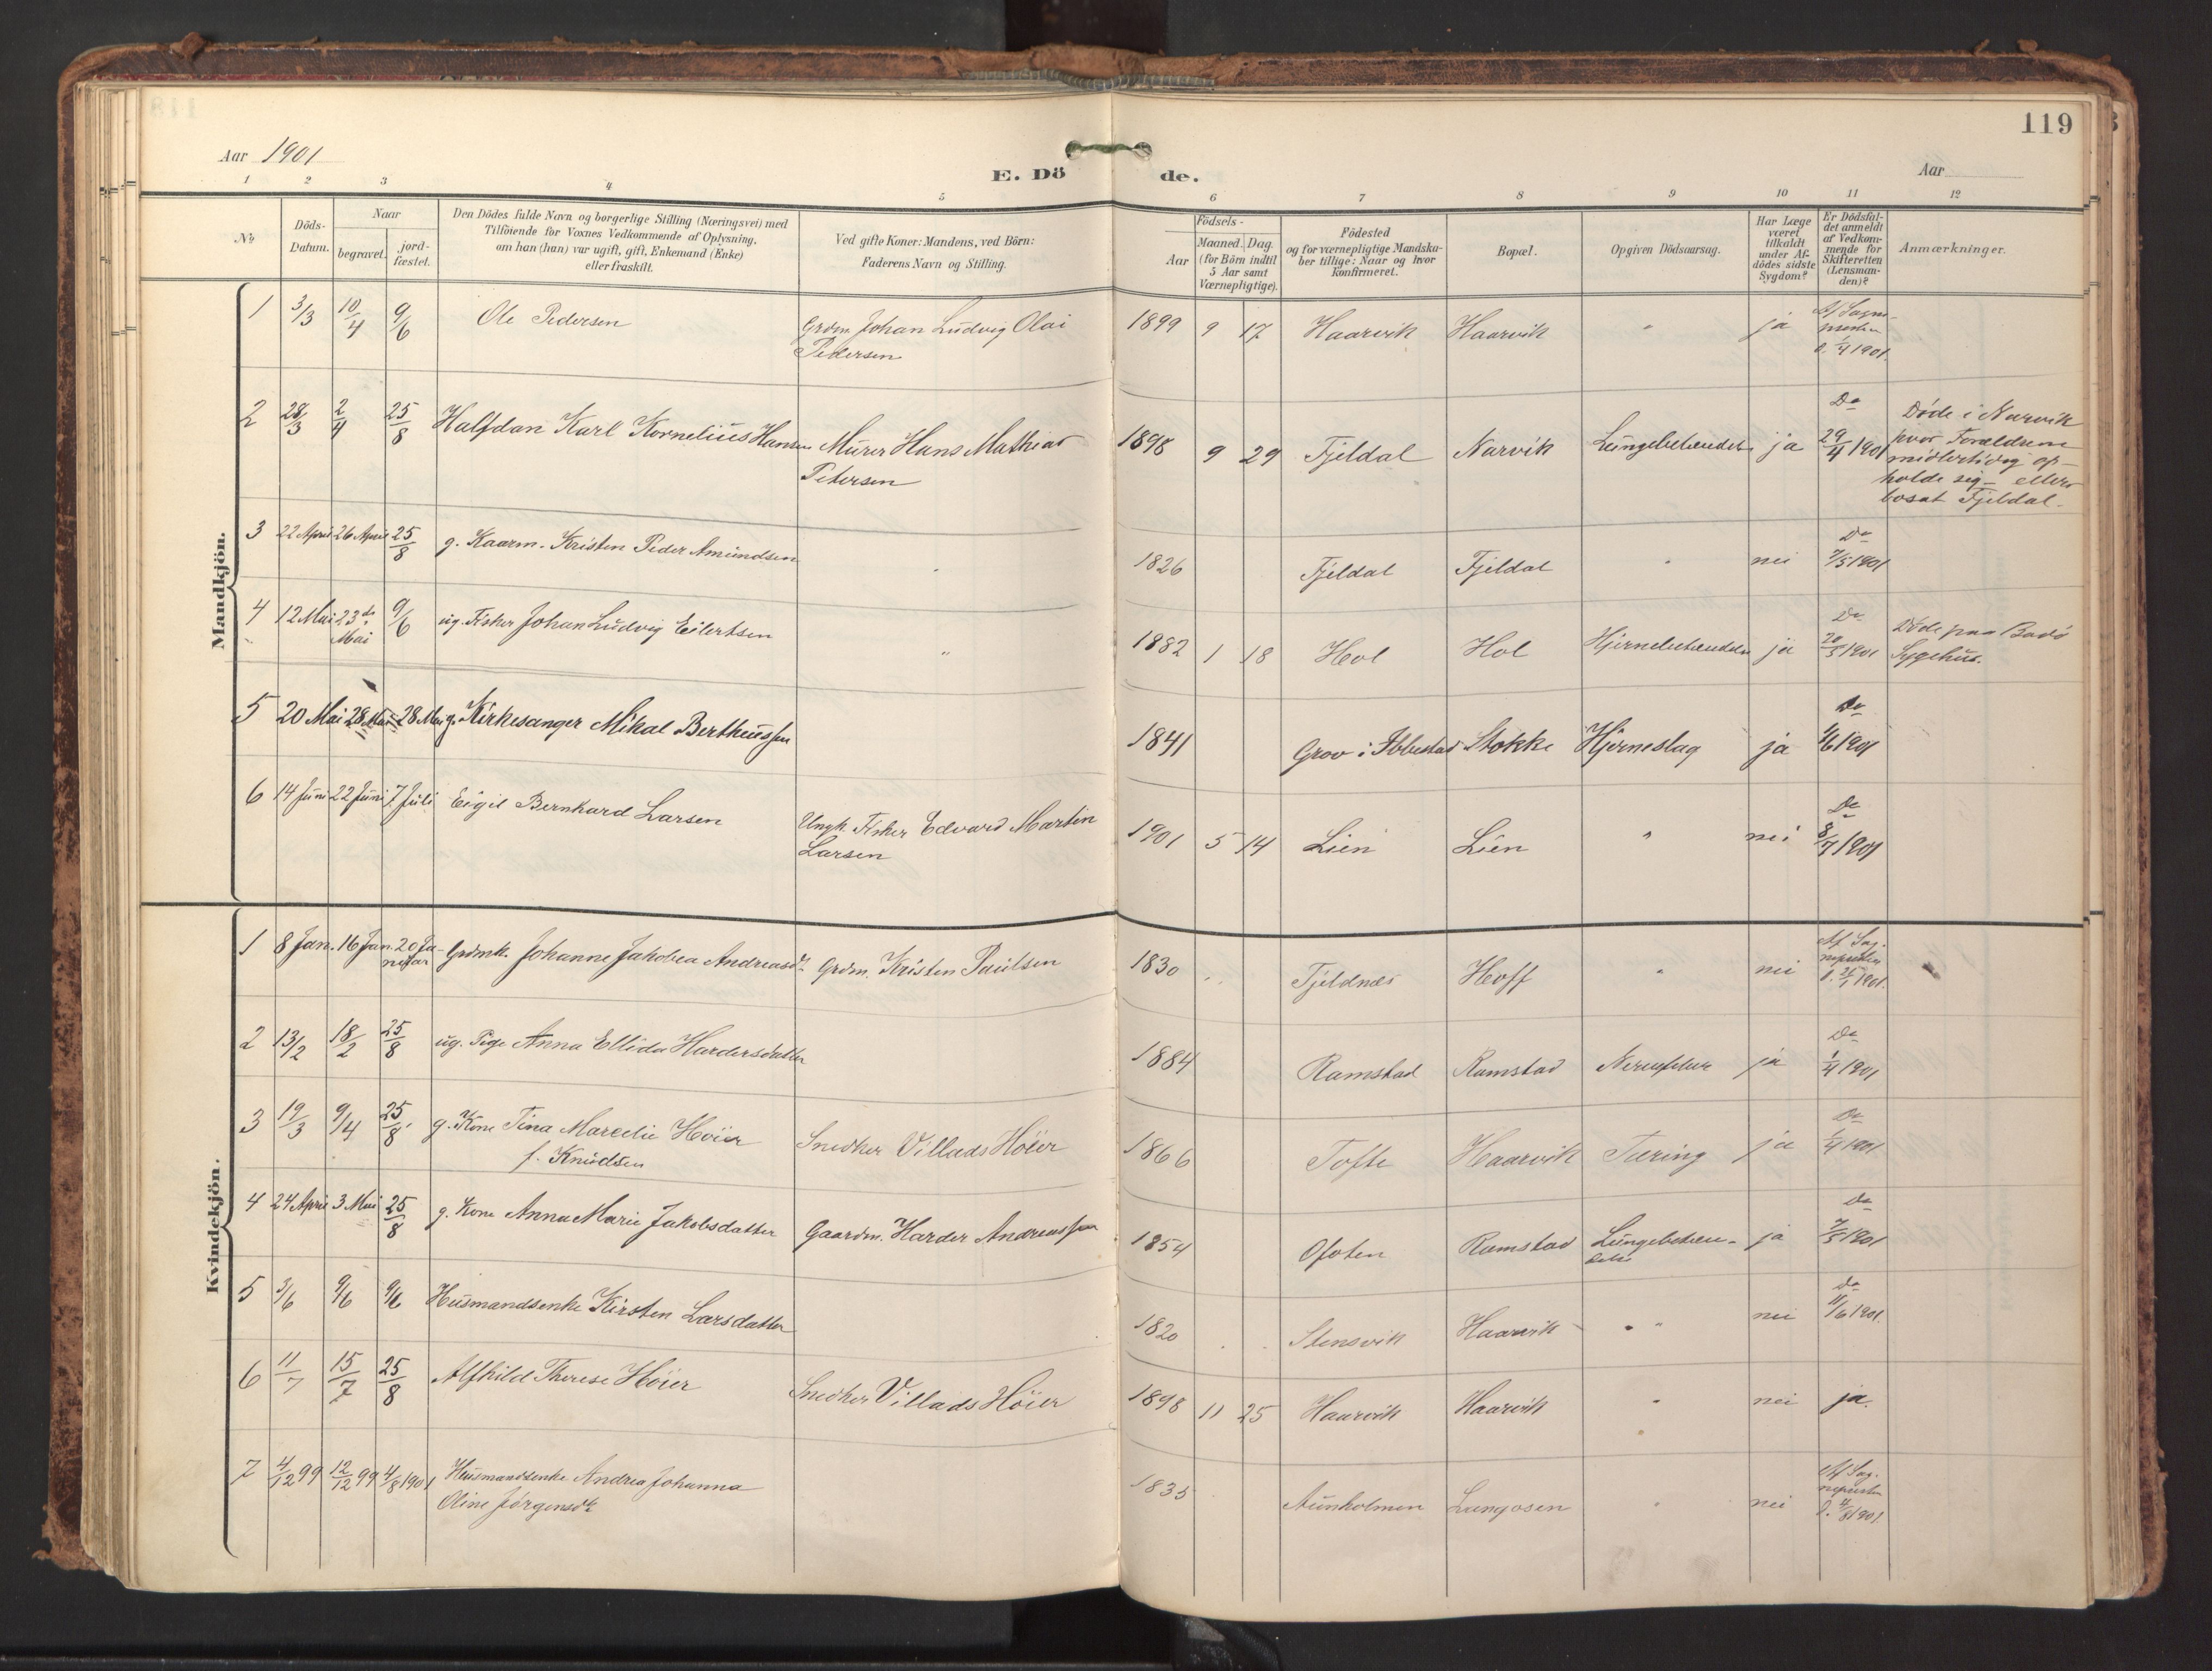 119
Aar 1901
E. Dö
de.
Aar
1 2 3 4 5 6 7 8 9 10 11 12
No
Döds-Datum.
Naar
begravet.
jord-fæstet.
Den Dödes fulde Navn og borgerlige Stilling (Næringsvei) med
Tilföiende for Voxnes Vedkommende af Oplysning,
om han (hun) var ugift, gift, Enkemand (Enke)
eller fraskilt.
Ved gifte Koner: Mandens, ved Börn:
Faderens Navn og Stilling.
Födsels-
Aar
Maaned. Dag.
(for Börn indtil
5 Aar samt
Værnepligtige).
Födested
og for værnepligtige Mandska-
ber tillige: Naar og hvor
Konfirmeret.
Bopæl.
Opgiven Dödsaarsag.
Har Læge
været
tilkaldt
under Af-
dödes sidste
Sygdom?
Er Dödsfal-
det anmeldt
af Vedkom-
mende for
Skifteretten
(Lensman-
den)?
Anmærkninger.
Mandkjön.
1 3/3 10/4 9/6 Ole Pedersen Grdm. Johan Ludvig Olai
Pedersen
1899 9 17 Haarvik Haarvik " ja Af Sogne-
presten
d. 1/4 1901.
2 28/3 2/4 25/8 Halfdan Karl Kornelius Hansen Murer Hans Mathias
Petersen
1898 9 29 Fjeldal Narvik Lungebetændelse ja Do
29/4 1901
Døde i Narvik
hvor Forældrene
midlertidig op-
holde seg – ellers
bosat Fjeldal.
3 22 April 26 April 25/8 g. Kaarm. Kristen Peder Amundsen "
1826 Fjeldal Fjeldal " nei Do
7/5 1901
4 12 Mai 23de
Mai 9/6 ug. Fisker Johan Ludvig Eilertsen "
1882 1 18 Hol Hol Hjernebetændelse ja Do
20/5 1901
Døde paa Bodø
Sygehus.
5 20 Mai 28 Mai 28 Mai g. Kirkesanger Mikal Bertheussen
1841 Grov i Ibbestad Stokke Hjerneslag ja Do
1/6 1901
6 14 Juni 22 Juni 7 Juli Eigil Bernhard Larsen Ungk. Fisker Edvard Martin
Larsen
1901 5 14 Lien Lien " nei Do
8/7 1901
Kvindekjön.
1 8 Jan. 16 Jan. 20 Ja-
nuar Grdmk. Johanne Jakobea Andreasdt. Grdm. Kristen Paulsen
1830 Fjeldnes Hoff " nei Af Sog-
nepresten
d. 21/1 1901.
2 13/2 18/2 25/8 ug. Pige Anna Ellida Hardersdatter
1884 Ramstad Ramstad Nervefeber ja Do
1/4 1901
3 19/3 9/4 25/8 g. Kone Tina Marcelie Høier
f. Knudsen Snedker Villads Höier
1866 Tofte Haarvik Tæring ja Do
1/4 1901
4 24 April 3 Mai 25/8 g. Kone Anna Marie Jakobsdatter Gaardm. Harder Andreassen
1854 Ofoten Ramstad Lungebetæn-
delse ja do
7/5 1901
5 3/6 9/6 9/6 Husmandsenke Kirsten Larsdatter
1820 Stensvik Haarvik " nei do
11/6 1901.
6 11/7 15/7 25/8 Alfhild Therese Höier Snedker Villads Höier
1898 11 25 Haarvik Haarvik " nei ja.
7 4/12 99 12/12 99 4/8 1901 Husmandsenke Andrea Johanna
Oline Jørgensdt.
1835 Aunholmen Langosen " nei Af Sog-
nepresten
d. 4/8 1901.